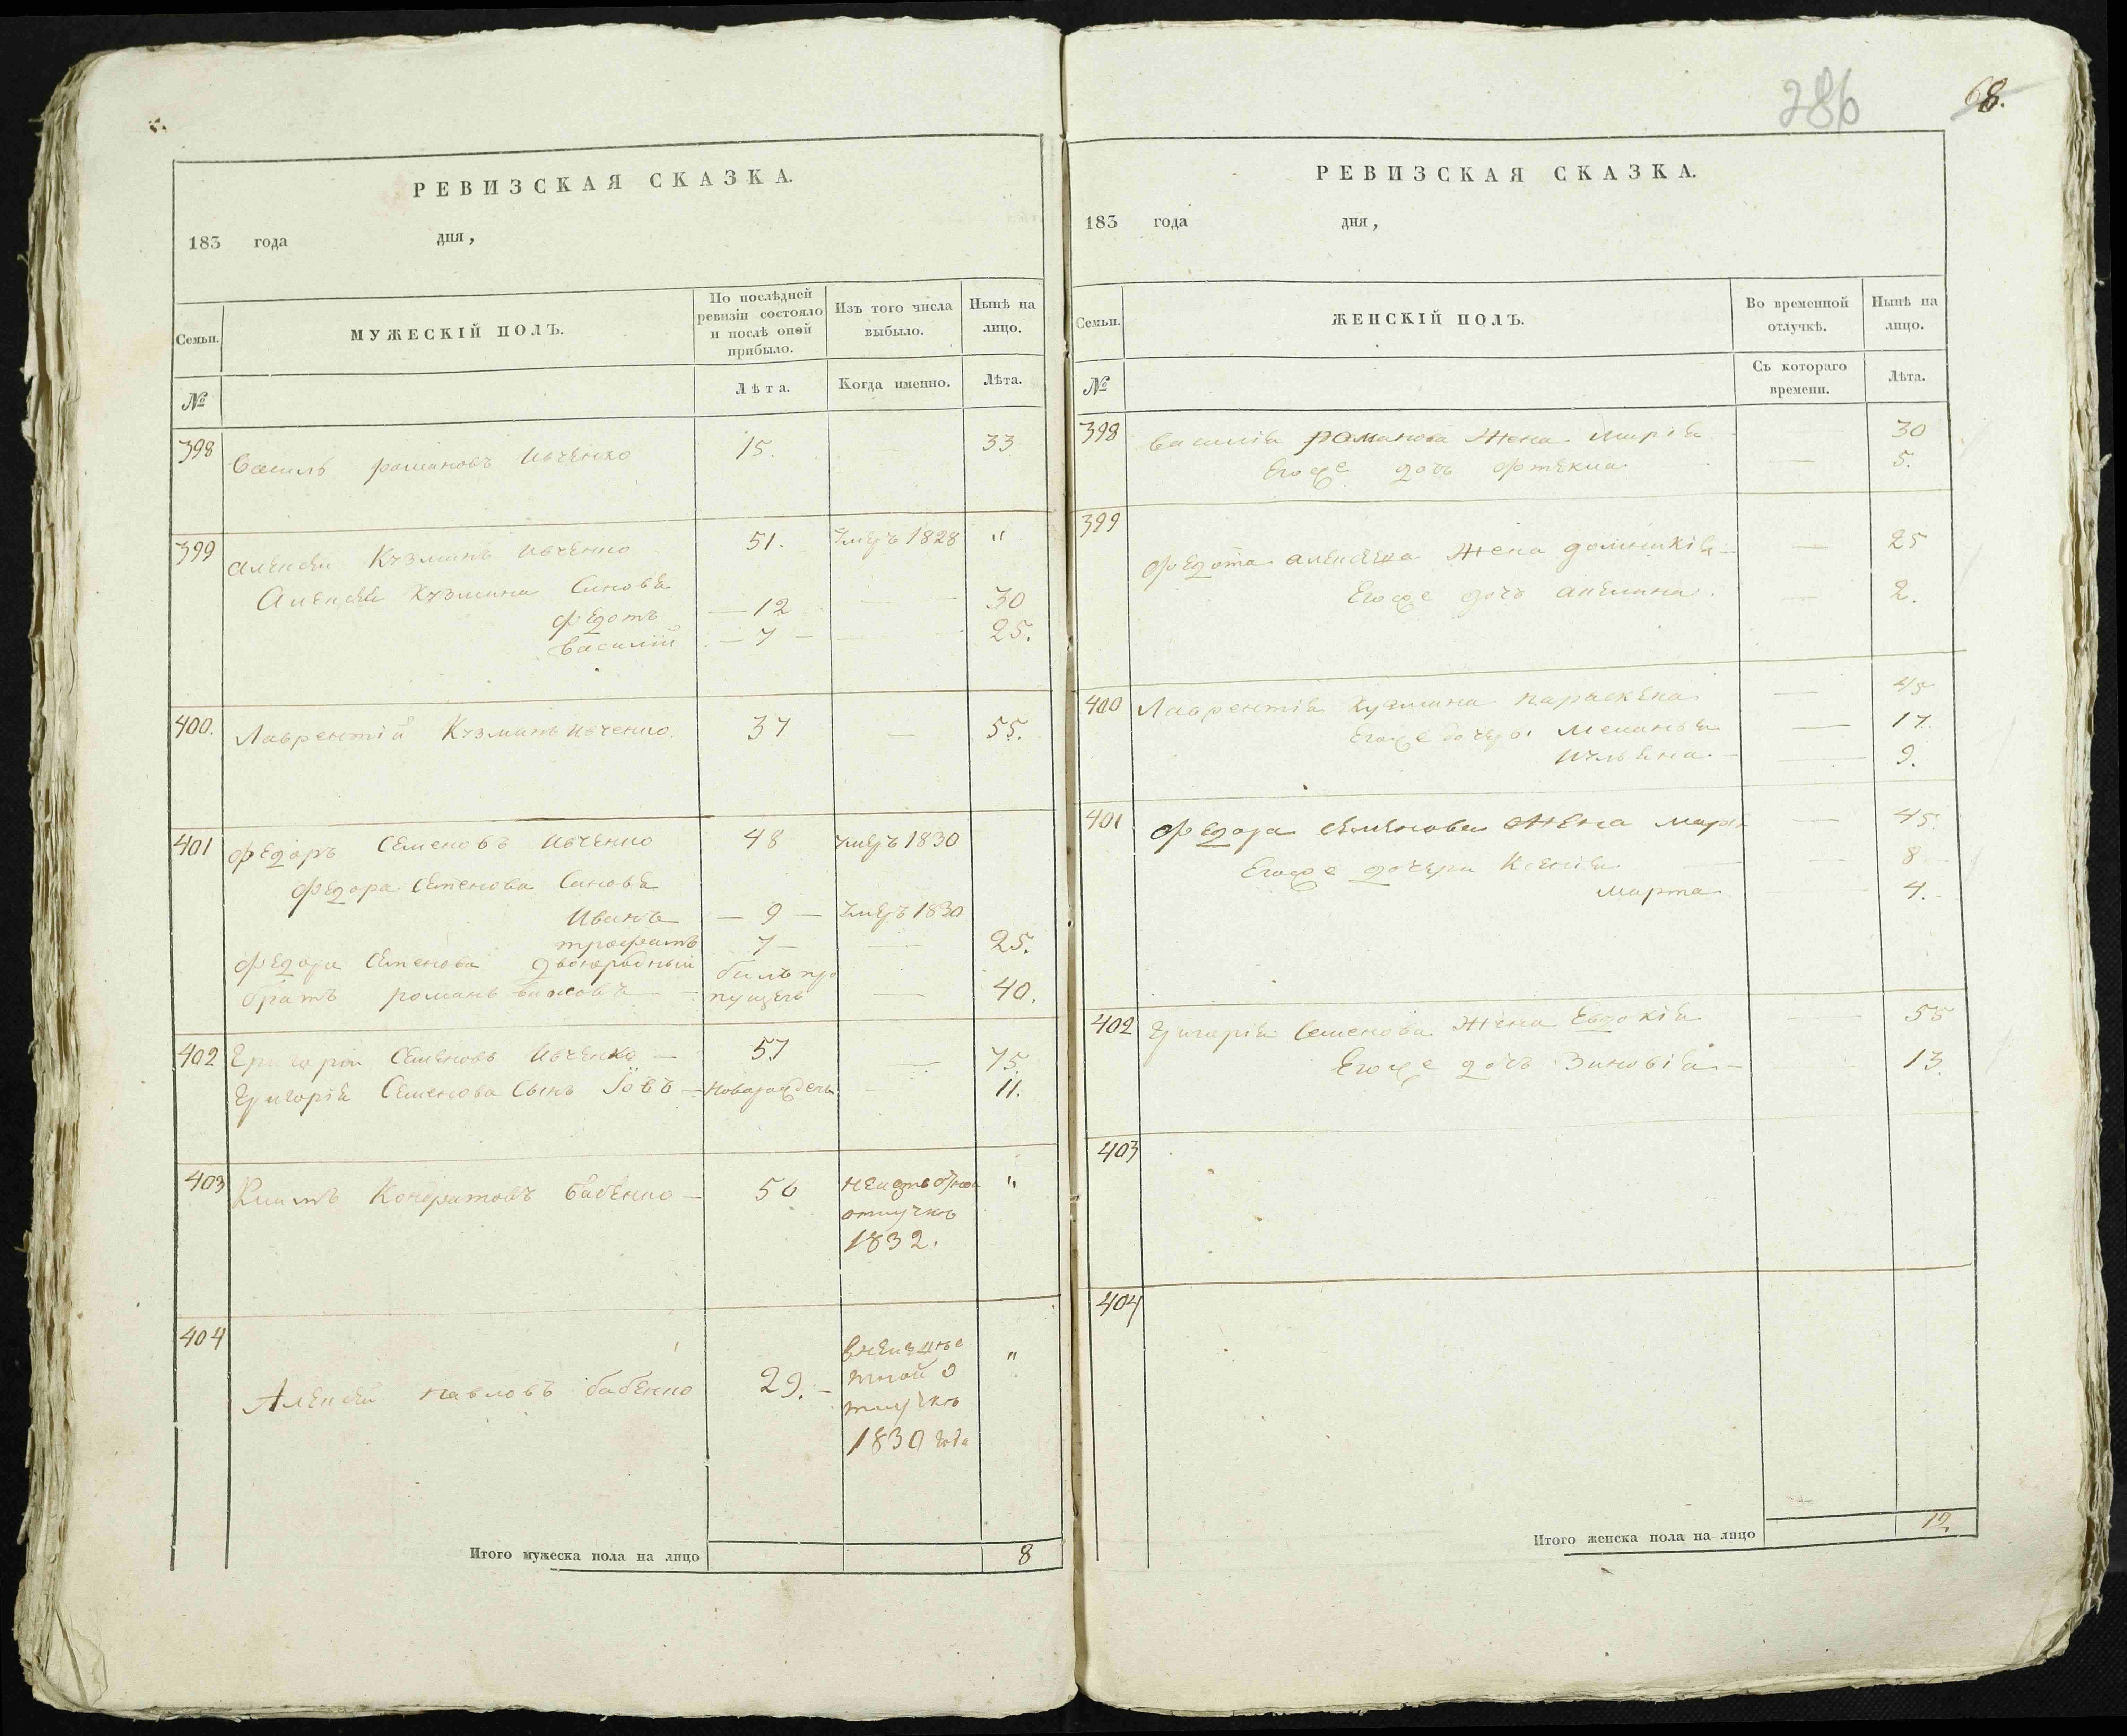 РЕВИЗСКАЯ СКАЗКА.
183 года дня,
Семьи. МУЖЕСКІЙ ПОЛЪ. По послѣдней ревизіи состояло и послѣ оной прибыло. Изъ того числа выбыло. Нынѣ на лицо.
№ Лѣта. Когда именно. Лѣта.
398 Василь романовъ Ивченко 15. 33
399 Алексѣй Кузминъ Ивченко 51. Умеръ 1828 "
Алексѣя Кузмина Синовя
Федотъ — 12 30
Василій — 7 — 25.
400. Лаврентій Кузминъ Ивченко 37 — 55.
401 Федоръ Семеновъ Ивченко 48 Умеръ 1830
Федора Семенова Синовя
Иванъ — 9 — Умеръ 1830
трофимъ 7 — 25.
Федора Семенова двоюродный билъ про
братъ романъ пущенъ — 40.
402 Григорій Семеновъ Ивченко — 57 — 75.
Григорія Семенова Сынъ Іовъ — Новорожденъ 11.
403 Климъ Кондратовъ бабенко — 56 "
отлучкѣ
1832.
404
Алексѣй павловъ бабенко 29. — "
1830 года
Итого мужеска пола на лицо 8
286 68.
РЕВИЗСКАЯ СКАЗКА.
183 года дня,
Семьи. ЖЕНСКІЙ ПОЛЪ. Во временной отлучкѣ. Нынѣ на лицо.
№ Съ котораго времени. Лѣта.
398 Василія романова Жена Марія 30
Егоже дочь — 5.
399
Федота алексѣева Жена домникія — 25
Егоже дочь акелина. 2.
400 Лаврентія Кузмина параскева — 45
Егоже дочери Меланья — 17.
Ульяна — 9.
401 Федора Семенова Жена — 45.
Егоже дочери Ксенія — 8
марта 4.
402 Григорія Семенова Жена Евдокія 55
Егоже дочь Зиновія — 13.
403
404
Итого женска пола на лицо 12.